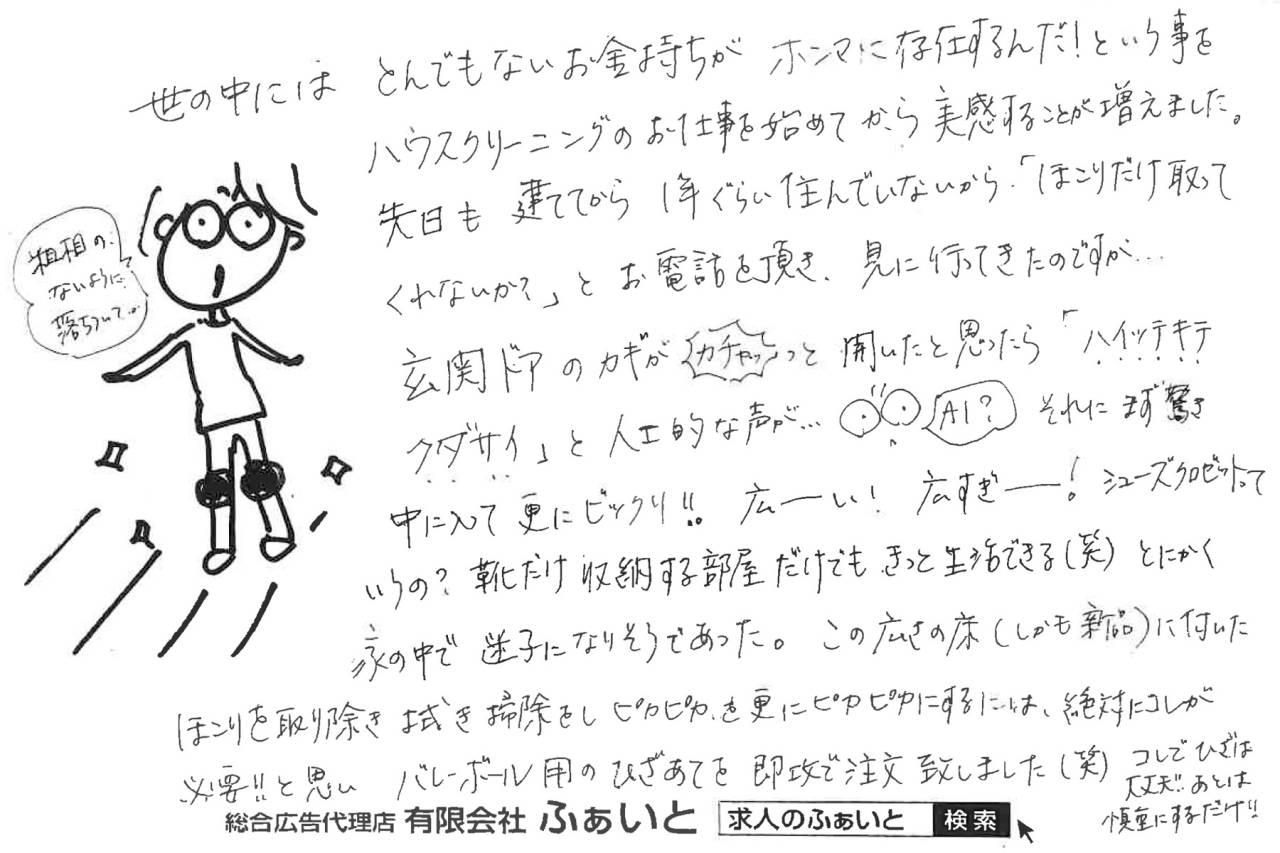 世の中には とんでもないお金持ちが ホンマに存在するんだ!という事を
ハウスクリーニングのお仕事を始めてから実感することが増えました。
先日も 建ててから 1年ぐらい住んでいないから、「ほこりだけ取って
くれないか?」とお電話を頂き、見に行ってきたのですが…
玄関ドアのカギが カチャッっと 開いたと思ったら 「ハイッテキテ
クダサイ」と人工的な声が… AI? それにまず驚き
中に入って更にビックリ!! 広ーい! 広すぎー! シューズクロゼットって
いうの? 靴だけ収納する部屋だけでも きっと生活できる(笑) とにかく
家の中で 迷子になりそうであった。 この広さの床(しかも新品)に付いた
ほこりを取り除き 拭き掃除をし ピカピカを更にピカピカにするには、絶対にコレが
必要!!と思い バレーボール用のひざあてを 即攻で注文致しました(笑)
コレでひざは
大丈夫!! あとは
慎重にするだけ!!
粗相の
ないように
落ちついて…
総合広告代理店 有限会社 ふぁいと 求人のふぁいと 検索